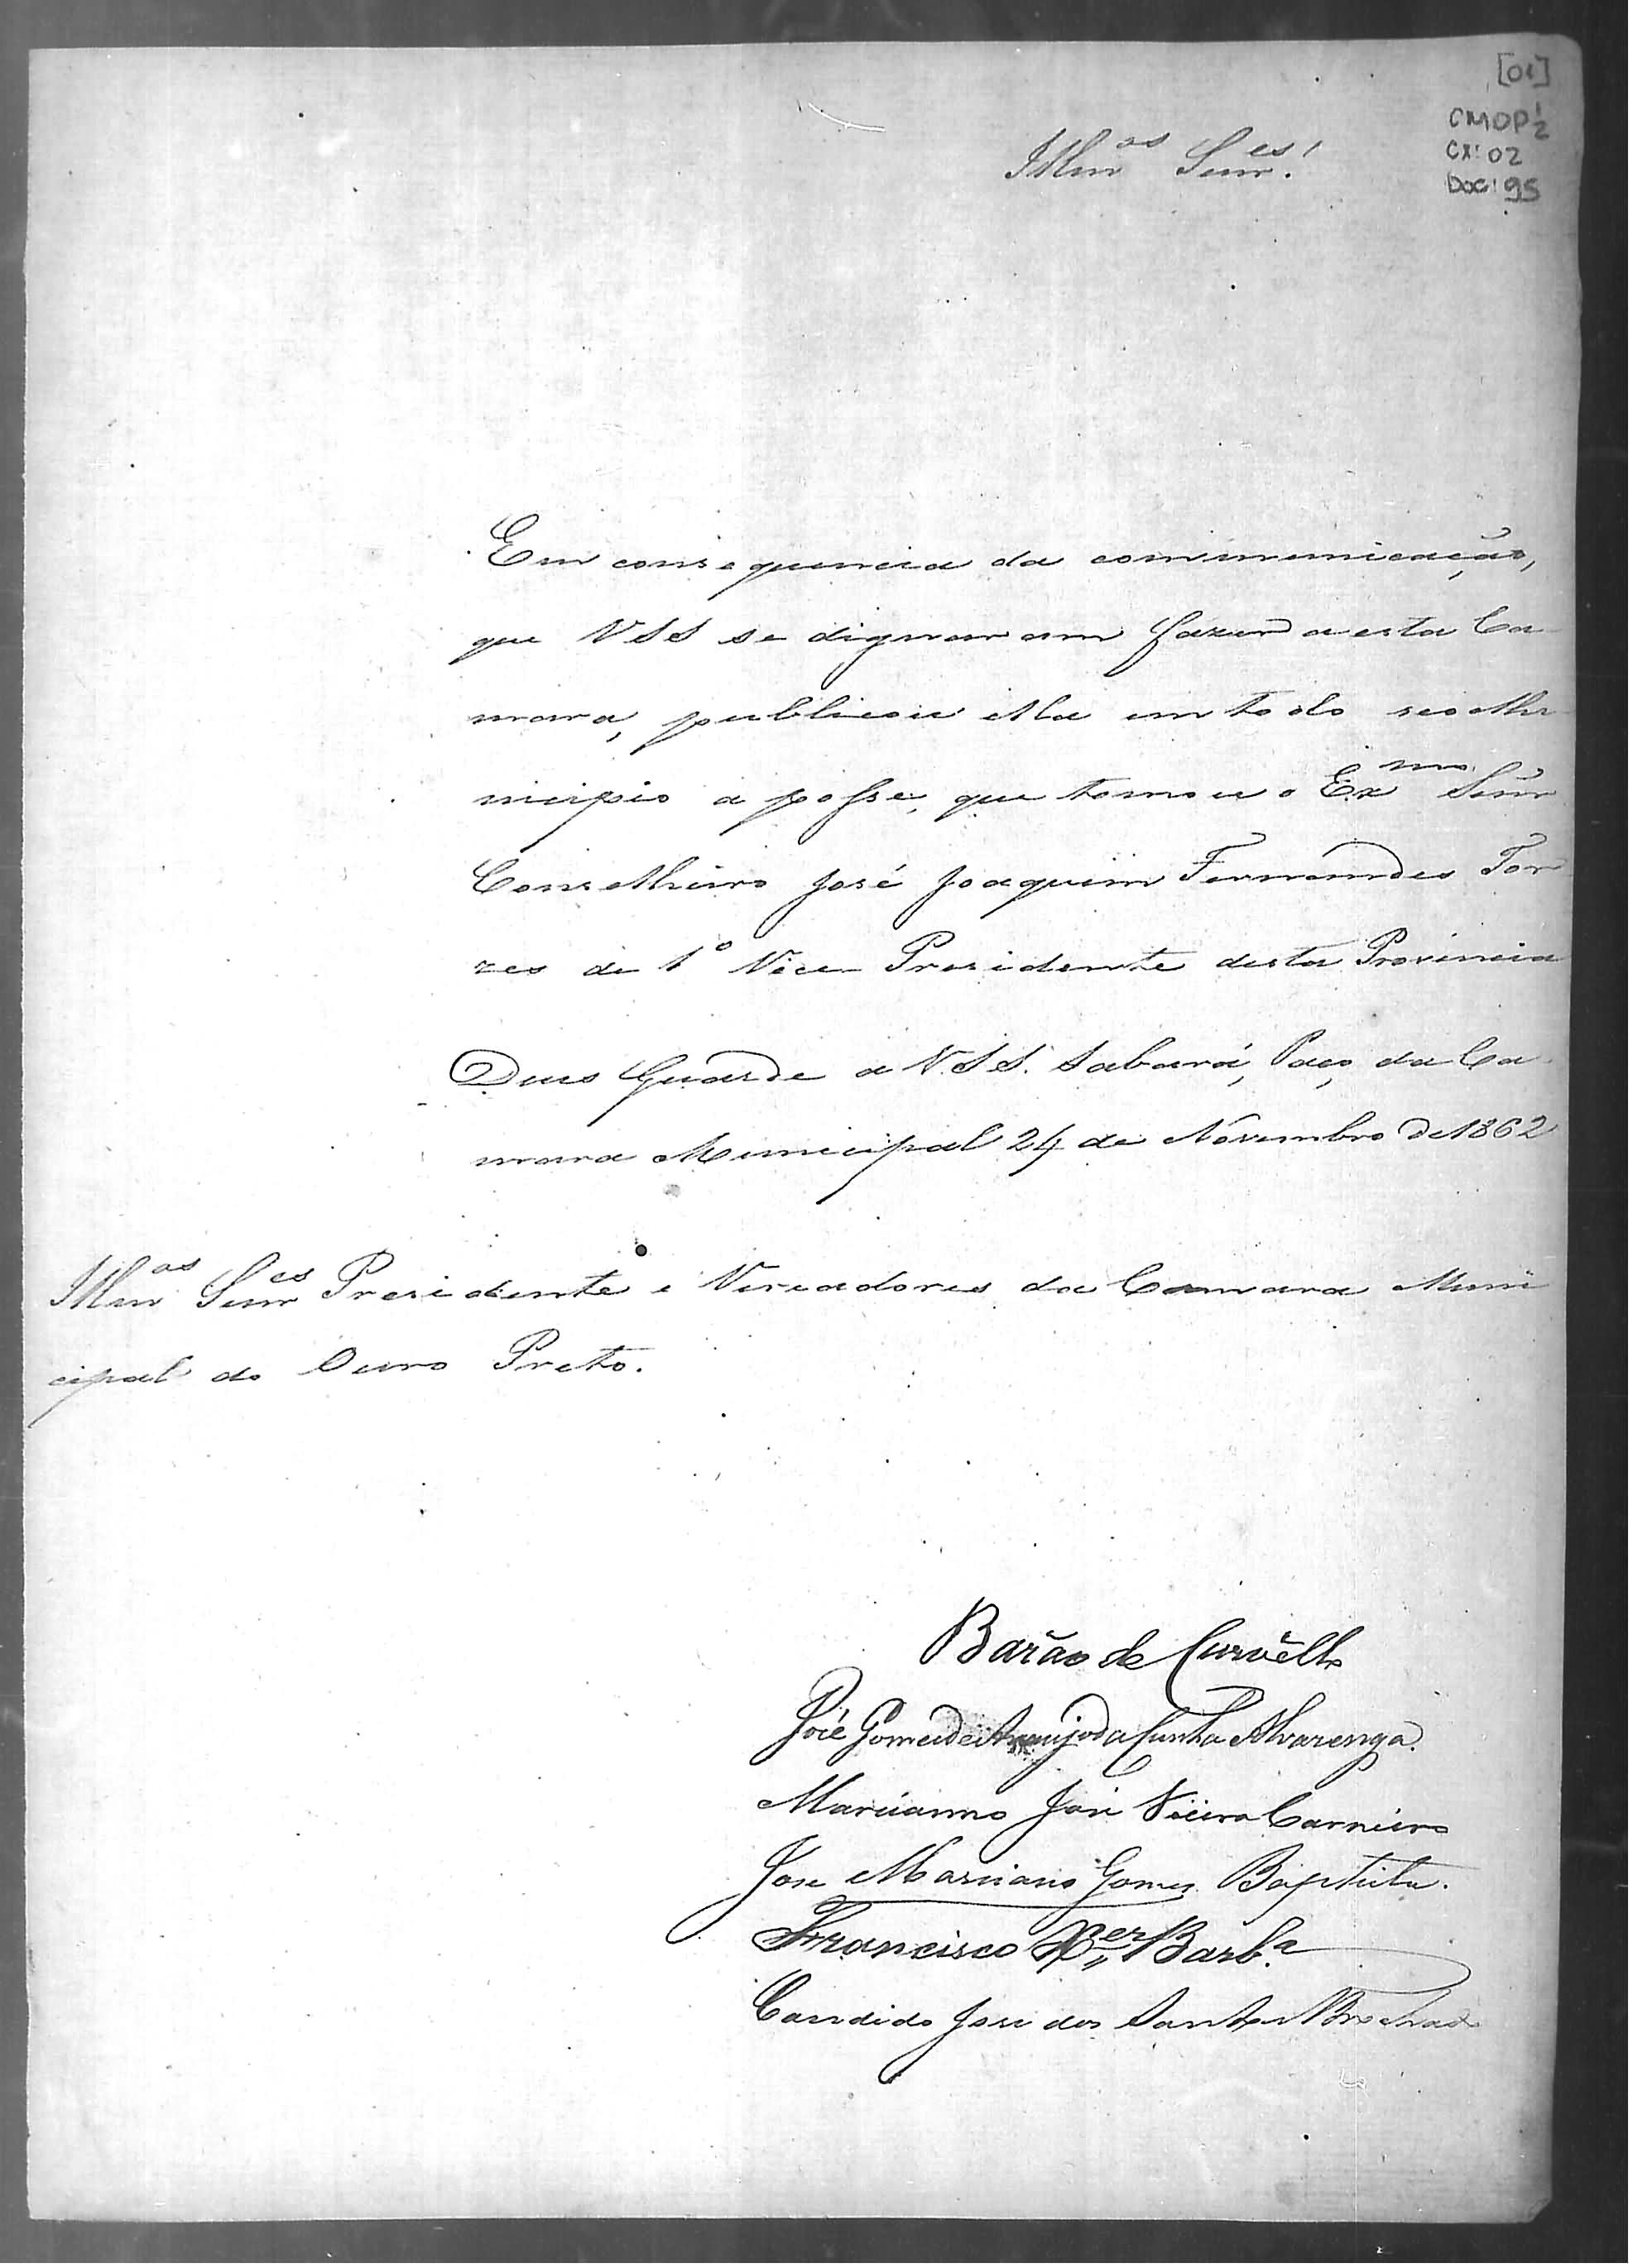 [01]
CMOP 1/2
CX: 02
DOC: 95
Illmos Senres!
Em consequencia da communicação,
que VSS se dignaram fazer a esta Ca
mara, publicou ella em todo seo Mu
nicipio a posse, que tomou o Exmo Senr
Conselheiro José Joaquim Fernandes Tor
res de 1º Vice Presidente desta Provincia
Deus Guarde a V.SS. Sabará, Paço da Ca
mara Municipal 24 de Novembro de 1862
Illmos Senres Presidente e Vereadores da Camara Muni
cipal do Ouro Preto.
Barão de Curvello
José Gomes de Araujo da Cunha Alvarenga.
Marcianno José Vieira Carneiro
Jose Marciano Gomes Baptista.
Francisco Xer Barbª
Candido José dos Santos Brochado